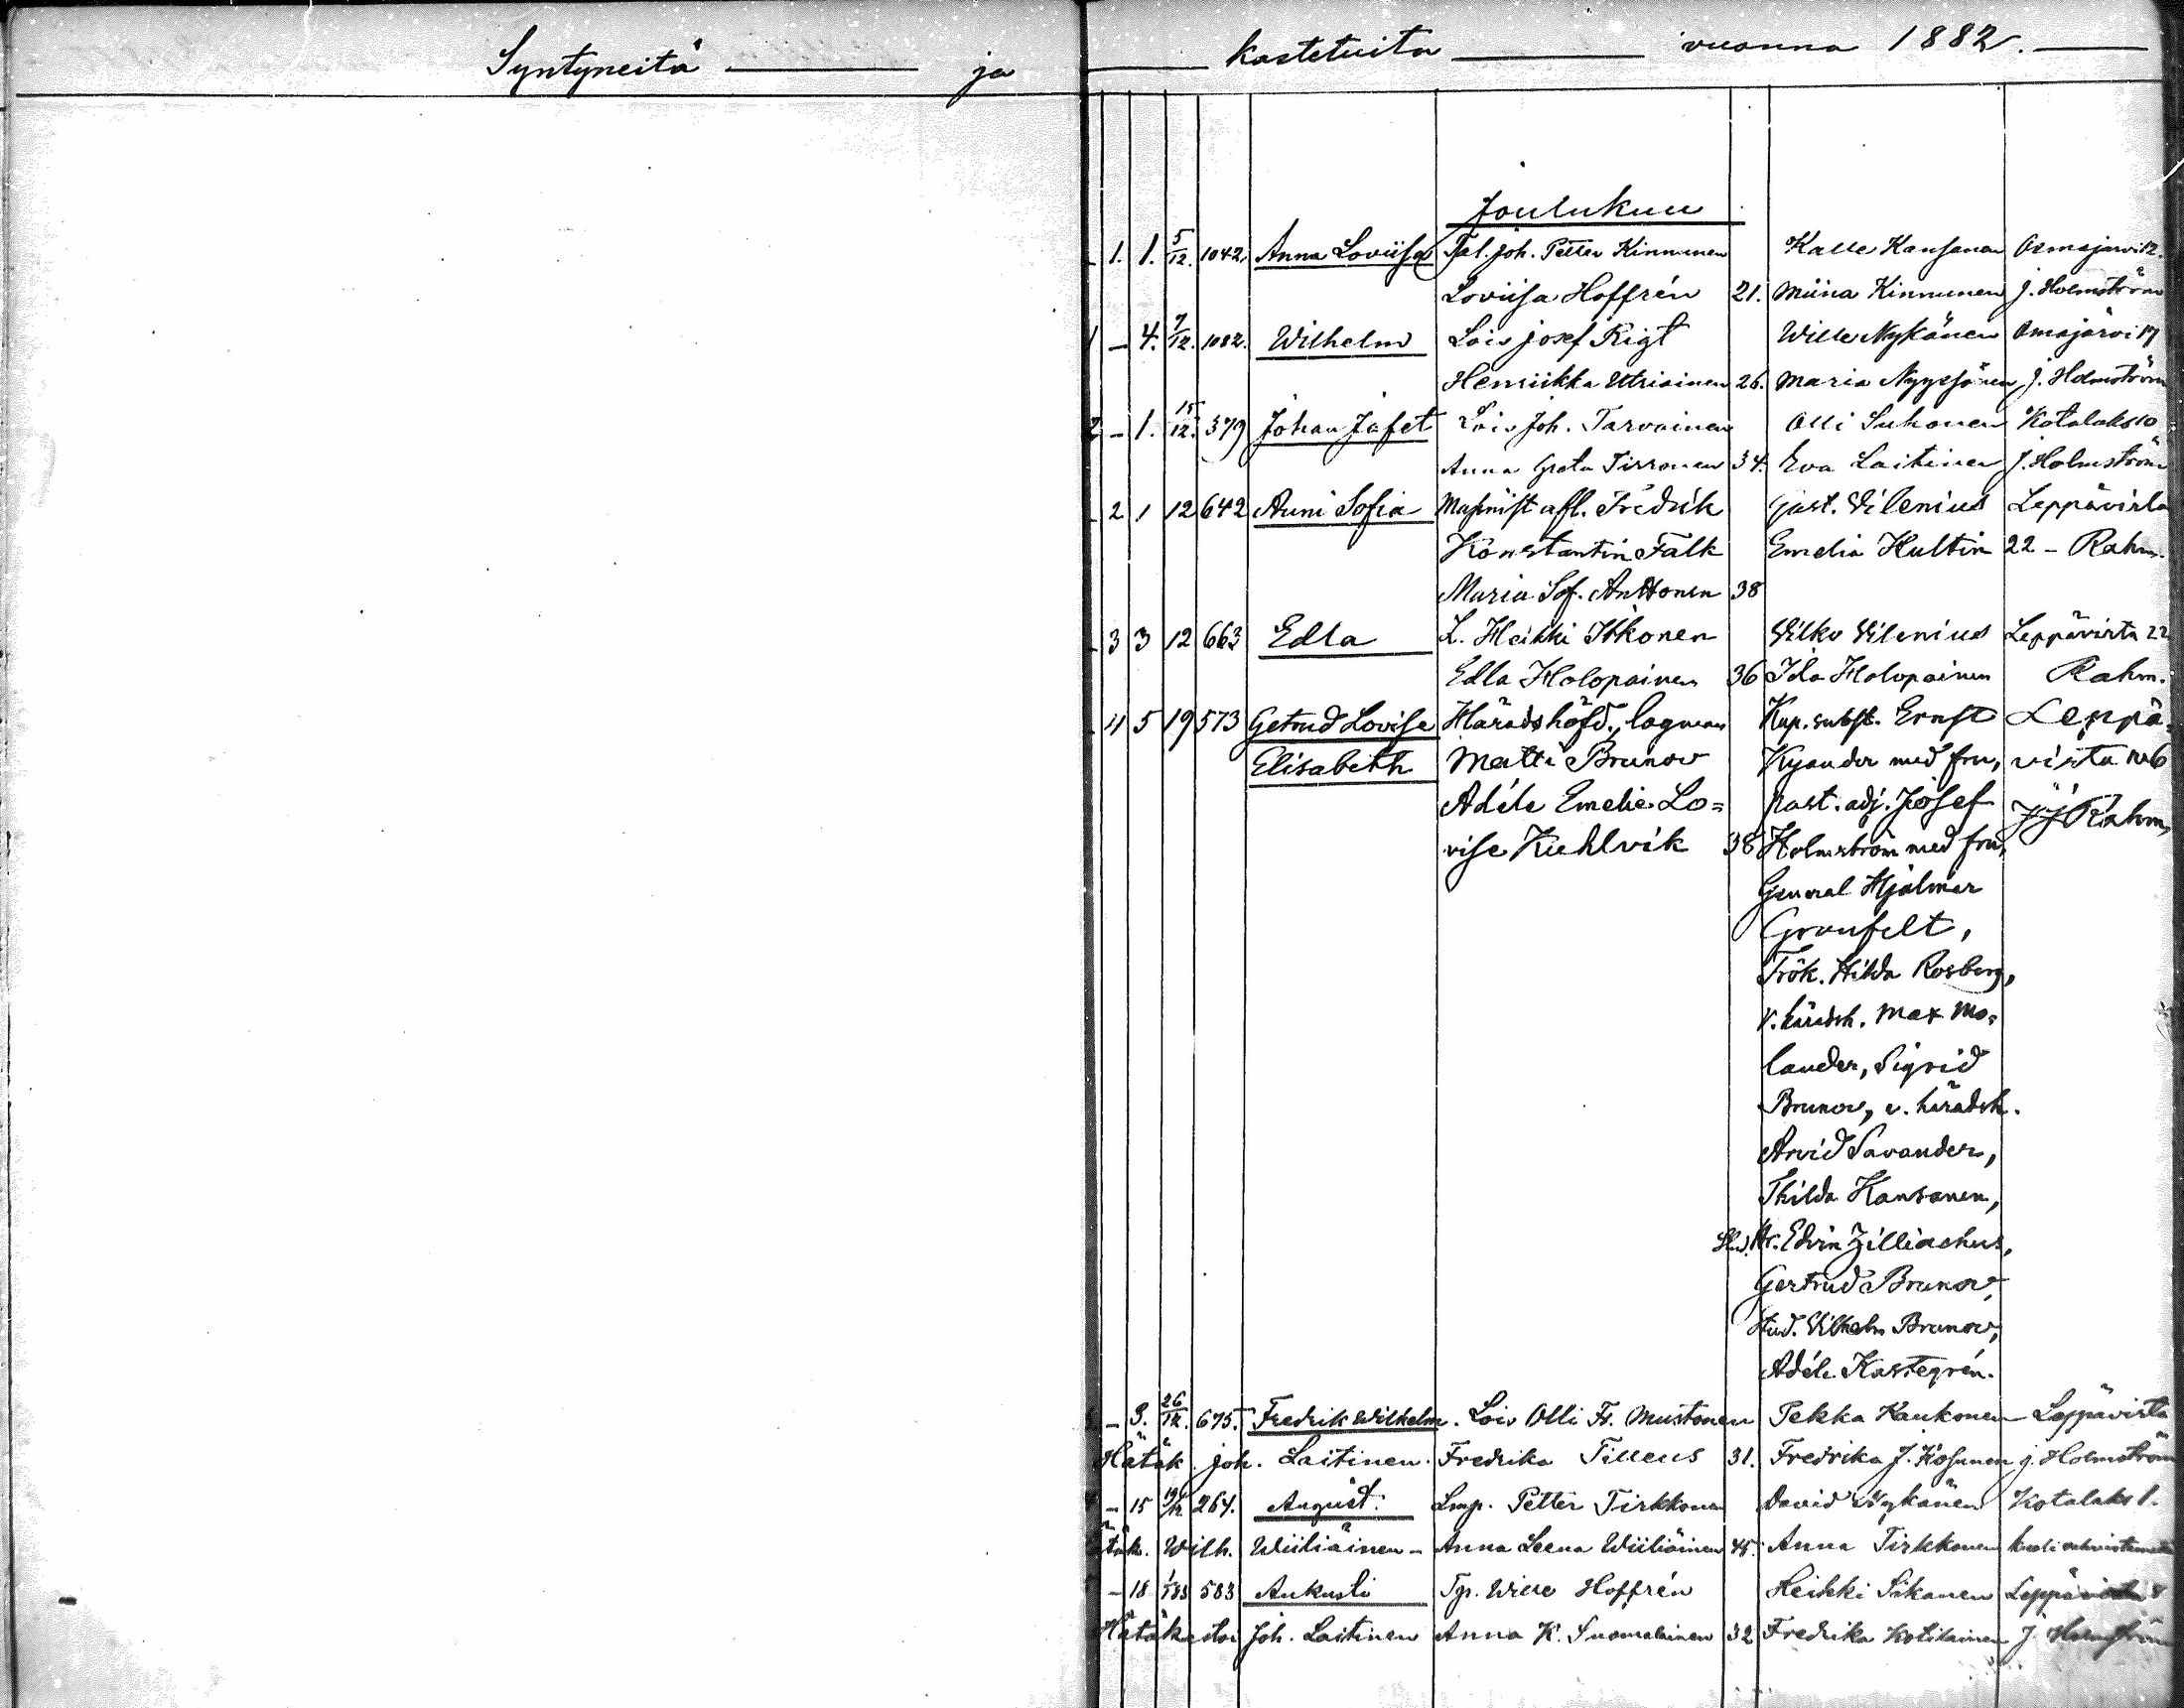 Syntyneitä ja kastetuita vuonna 1882.
Joulukuu
1. 1. 5/12. 1042. Anna Loviisa Tal. Joh. Petter Kinnunen Kalle Kansanen Osmajärvi 12.
Loviisa Hoffrén 21. Miina Kinnunen J. Holmström
1 – 4. 7/12. 1082. Wilhelm Lois Josef Rigt Wille Nykänen Osmajärvi 17
Henriikka Utriainen 26. Maria Nyyssönen J. Holmström
2 – 1. 15/12. 379 Johan Jafet Lois Joh. Tarvainen Olli Suhonen Kotalaks 10
Anna Greta Tirronen 34. Eva Laitinen J. Holmström
2 1 12 642 Anni Sofia Maschinist afl. Fredrik past. Vilenius Leppävirta
Konstantin Falk Emelia Hultin 22 – Rahm.
Maria Sof. Anttonen 38
3 3 12 663 Edla L. Heikki Itkonen Vilko Vilenius Leppävirta 22
Edla Holopainen 36 Ida Holopainen Rahm.
4 5 19 573 Getrud Lovise Häradshöfd., lagman Kap. subst. Ernst Leppä-
Elisabeth Matti Brunow Kyander med fru, virta No 6
Adéle Emelie Lo= past. adj. Josef JJ Rahm,
vise Kuhlvik 38 Holmström med fru,
General Hjalmar
Granfelt,
Frök. Hilda Rosberg,
v. häradsh. Max Mo-
lander, Sigrid
Brunow, v. häradsh.
Arvid Savander,
Thilda Kansanen,
Stud. Hr. Edvin Zilliachus,
Gertrud Brunow,
Stud. Vilhelm Brunow,
Adéle Kastegrén.
– 9. 26/12. 675. Fredrik Wilhelm. Lois Olli Fr. Mustonen Pekka Kaukonen Leppävirta
Hätäk. Joh. Laitinen. Fredrika Tilleus 31. Fredrika J. Kosunen J. Holmström
– 15 19/12 264. August. Lmp. Petter Tirkkonen David Nykänen Kotalaks 1.
Wilh. Wiiliäinen – Anna Leena Wiiliäinen 45. Anna Tirkkonen
– 18 1/183 583 Aukusti Tp. Wille Hoffrén Heikki Sikanen Leppävirta 8
Hätäkastoi Joh. Laitinen Anna K. Suomalainen 32 Fredrika Kotilainen J. Holmström